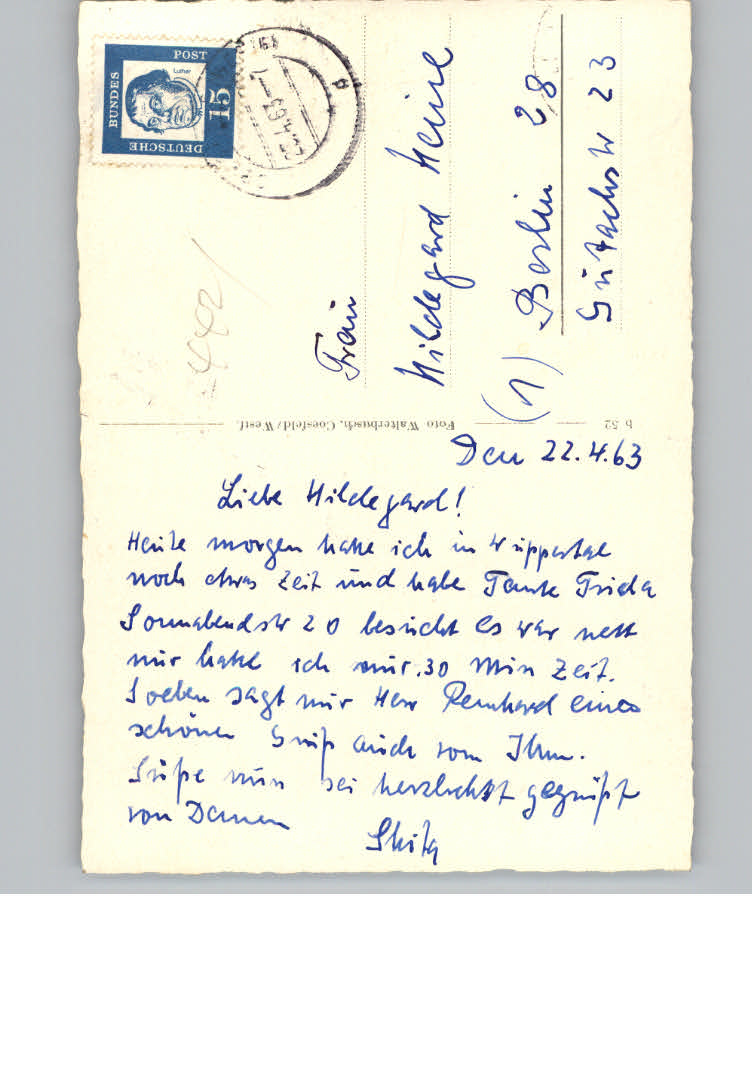 Den 22.4.63
Liebe Hildegard!
Heute morgen hatte ich in Wuppertal
noch etwas Zeit und habe Tante Frida
Sonnabendstr 20 besucht es war nett
nur hatte ich nur 30 Min Zeit.
Soeben sagt mir Herr Reinhard einen
schönen Gruß auch von Ihm.
Süße nun sei herzlichst gegrüßt
von Deinem
Frau
Hildegard Heine
(1) Berlin 28
Gutachstr 23
DEUTSCHE
BUNDES
POST
15
Luther
442
Foto Walterbusch, Coesfeld/Westf.
b 52